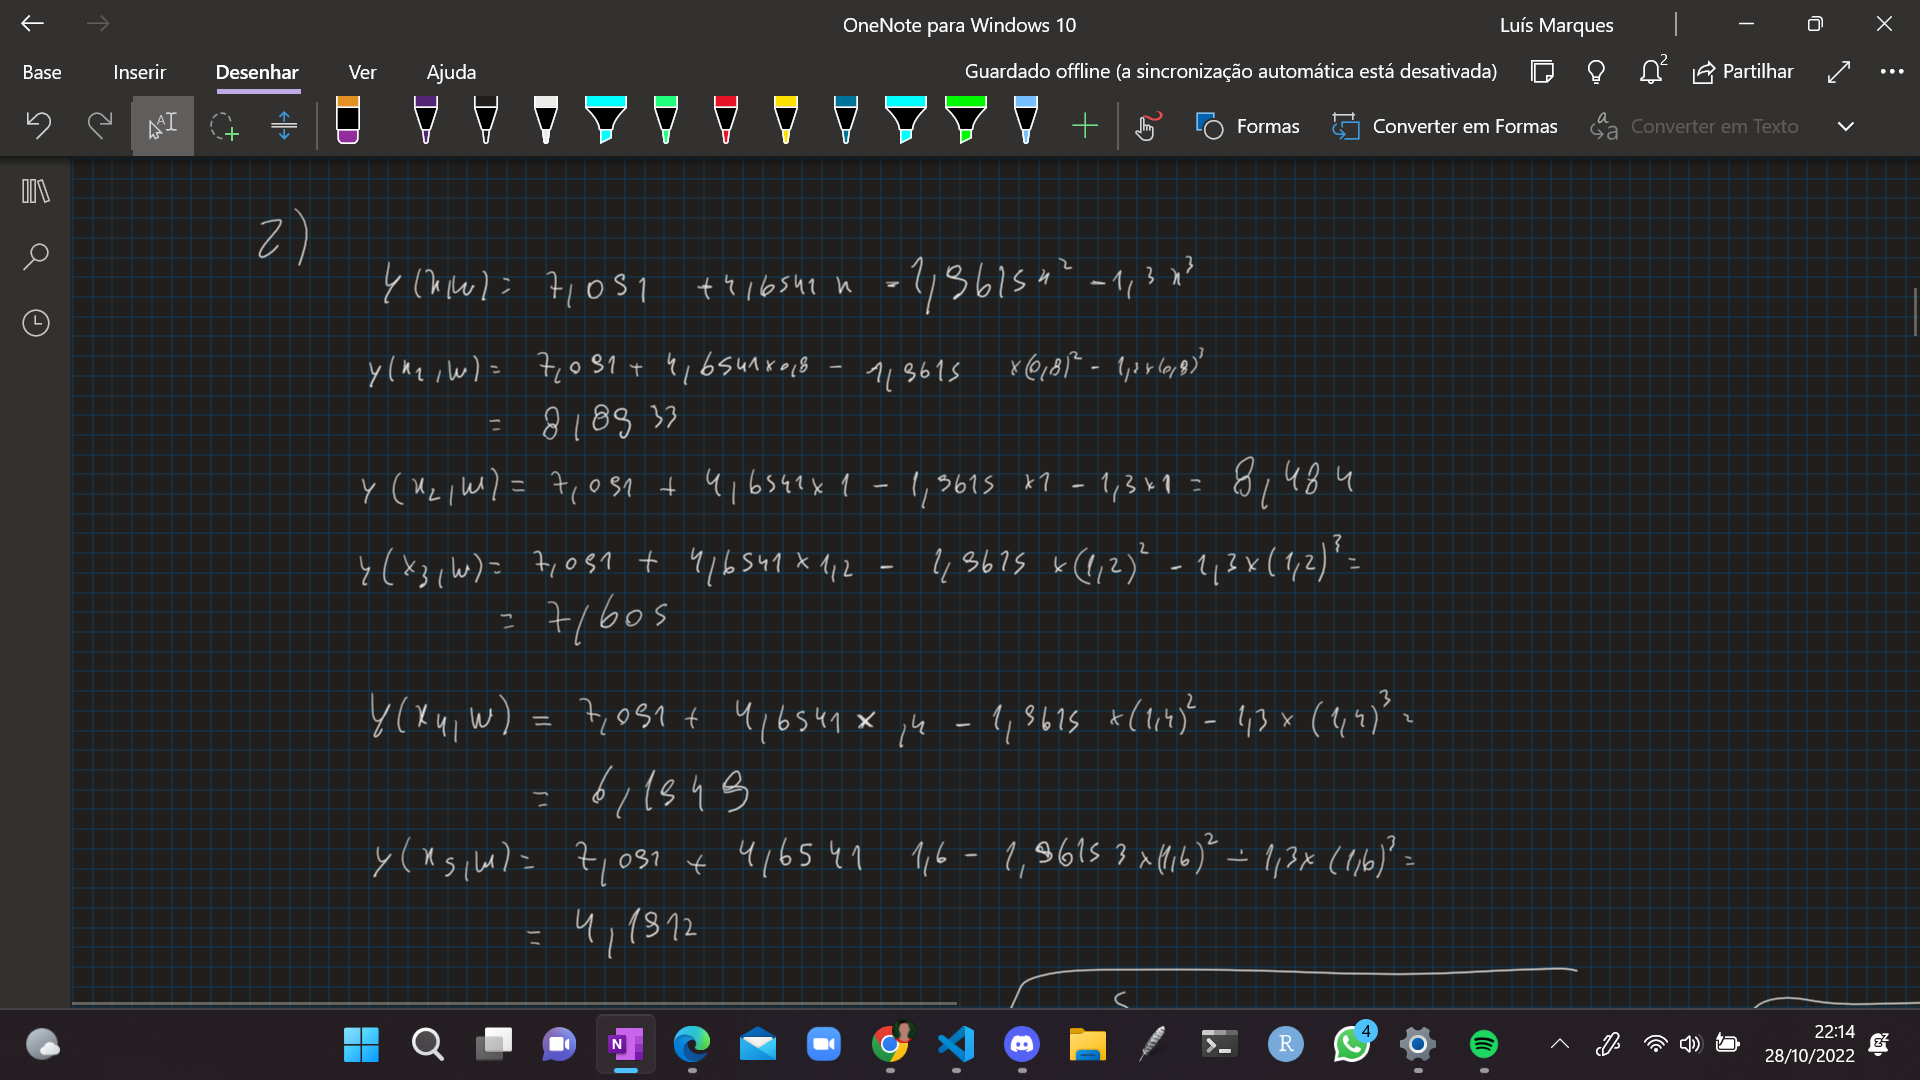 OneNote para Windows 10
Luís Marques
Base Inserir Desenhar Ver Ajuda
Guardado offline (a sincronização automática está desativada)
2
Partilhar
Formas
Converter em Formas
Converter em Texto
2)
y(x,w) = 7,091 + 4,6541 x - 1,9615 x² - 1,3 x³
y(x1,w) = 7,091 + 4,6541×0,8 - 1,9615 ×(0,8)² - 1,3×(0,8)³
= 8,8933
y(x2,w) = 7,091 + 4,6541×1 - 1,9615 ×1 - 1,3×1 = 8,484
y(x3,w) = 7,091 + 4,6541×1,2 - 1,9615 ×(1,2)² - 1,3×(1,2)³ =
= 7,605
y(x4,w) = 7,091 + 4,6541 × ,4 - 1,9615 ×(1,4)² - 1,3 × (1,4)³ =
= 6,1949
y(x5,w) = 7,091 + 4,6541 1,6 - 1,9615 3 ×(1,6)² - 1,3× (1,6)³ =
= 4,1912
N
R
4
22:14
28/10/2022